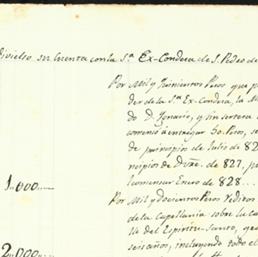 Divieso, su Cuenta con la S.ª Ex-Condesa de S. Pedro de
Por Mil y Quinientos Pesos que p
der de la S.ª Ex-Condesa, la M
do D. Ignacio, y sin
a entregar 50. Pesos, 
de principios de Julio de 82
cipios de Dvre. de 827, 
comensar Enero de 828...
1.000
Por Mil y Doscientos Pesos reditos
de la Capellania sobre la ca
lla del Espiritu-Santo, 
seis años, incluyendo todo el
2.000